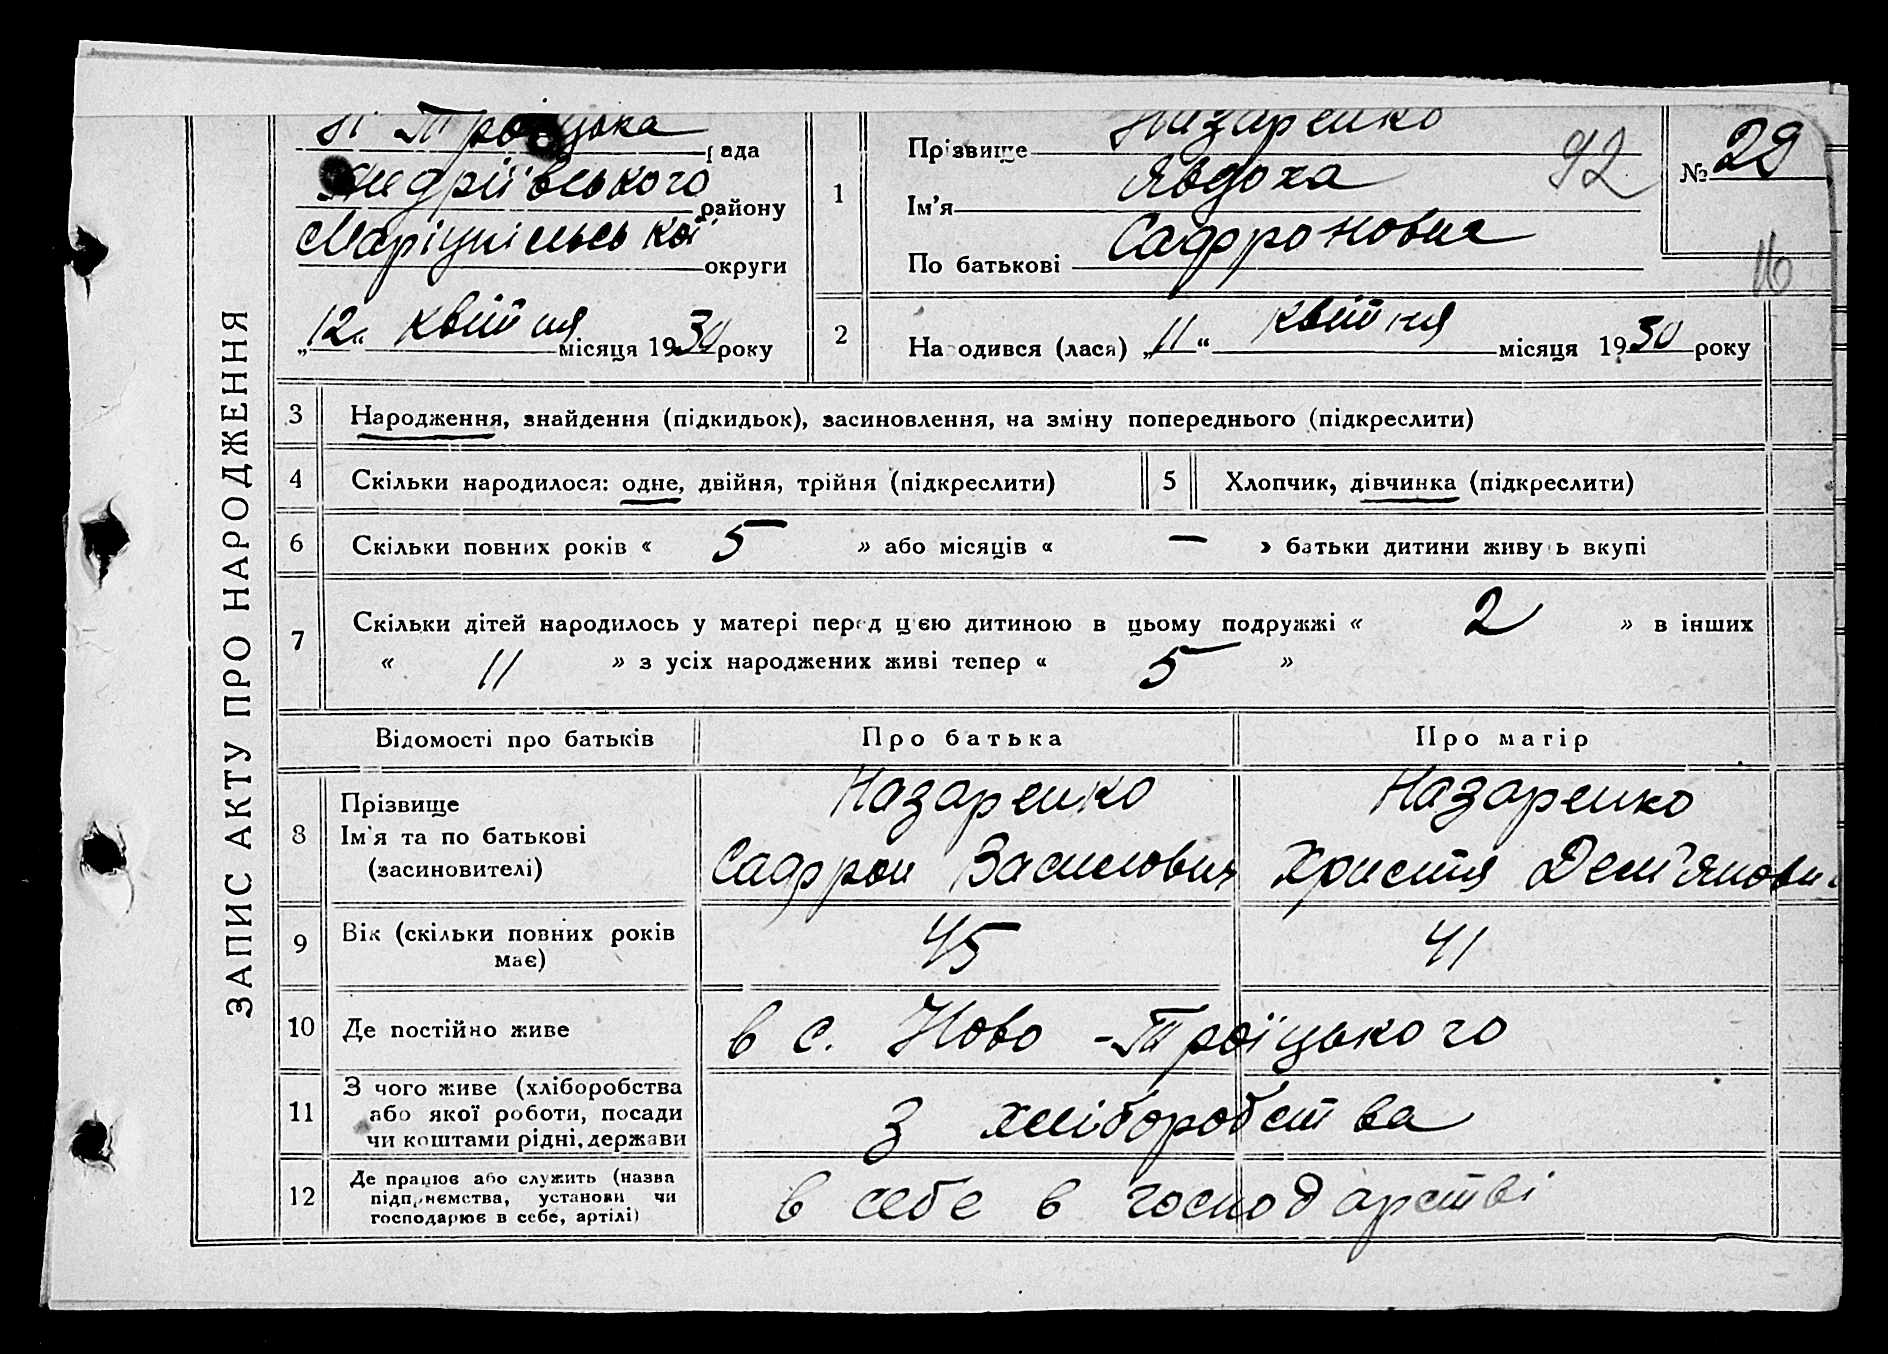 ЗАПИС АКТУ ПРО НАРОДЖЕННЯ
Н Троїцька рада
Андріївського району
Маріупільської округи
„12“ квітня місяця 1930 року
1
Прізвище Назаренко
Ім'я Явдоха
По батькові Сафроновна
92
№ 29
16
2
Народився (лася) „11“ квітня місяця 1930 року
3 Народження, знайдення (підкидьок), засиновлення, на зміну попереднього (підкреслити)
4 Скільки народилося: одне, двійня, трійня (підкреслити)
5 Хлопчик, дівчинка (підкреслити)
6 Скільки повних років « 5 » або місяців « — » батьки дитини живуть вкупі
7 Скільки дітей народилось у матері перед цією дитиною в цьому подружжі « 2 » в інших
« 11 » з усіх народжених живі тепер « 5 »
Відомості про батьків Про батька Про матір
8 Прізвище
Ім'я та по батькові
(засиновителі)
Назаренко
Сафрон Василович
Назаренко
Христя Дем'яновн
9 Вік (скільки повних років
має)
45 41
10 Де постійно живе в с. Ново-Троїцького
11 З чого живе (хліборобства
або якої роботи, посади
чи коштами рідні, держави
з хліборобства
12 Де працює або служить (назва
підприємства, установи чи
господарює в себе, артілі)
в себе в господарстві